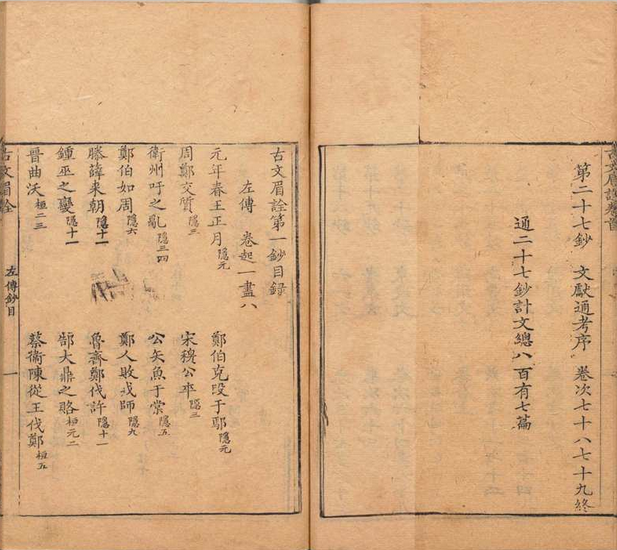 第二十七鈔　文獻通考序　卷次七十八七十九終
通二十七鈔計文總八百有七篇
古文眉詮第一鈔目錄
左傳　卷起一盡八
元年春王正月隱元　鄭伯克段于鄢隱元
周鄭交質隱三　宋穆公卒隱三
衛州吁之亂隱三四　公矢魚于棠隱五
鄭伯如周隱六　鄭人敗戎師隱九
滕薛來朝隱十一　魯齊鄭伐許隱十一
鍾巫之變隱十一　郜大鼎之賂桓元二
晉曲沃桓二三　蔡衞陳從王伐鄭桓五
古文眉詮
左傳鈔目
一